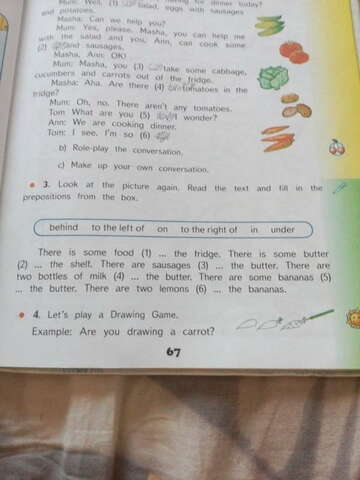 Mum: Well, (1) salad, eggs with sausages
and potatoes.
Masha: Can we help you?
Mum: Yes, please. Masha, you can help me
with the salad and you, Ann, can cook some
(2) and sausages.
Masha, Ann: OK!
Mum: Masha, you (3) take some cabbage,
cucumbers and carrots out of the fridge.
Masha: Aha. Are there (4) tomatoes in the
fridge?
Mum: Oh, no. There aren't any tomatoes.
Tom What are you (5) I wonder?
Ann: We are cooking dinner.
Tom: I see. I'm so (6)
b) Role-play the conversation.
c) Make up your own conversation.
3. Look at the picture again. Read the text and fill in the
prepositions from the box.
behind to the left of on to the right of in under
There is some food (1) ... the fridge. There is some butter
(2) ... the shelf. There are sausages (3) ... the butter. There are
two bottles of milk (4) ... the butter. There are some bananas (5)
... the butter. There are two lemons (6) ... the bananas.
4. Let's play a Drawing Game.
Example: Are you drawing a carrot?
67